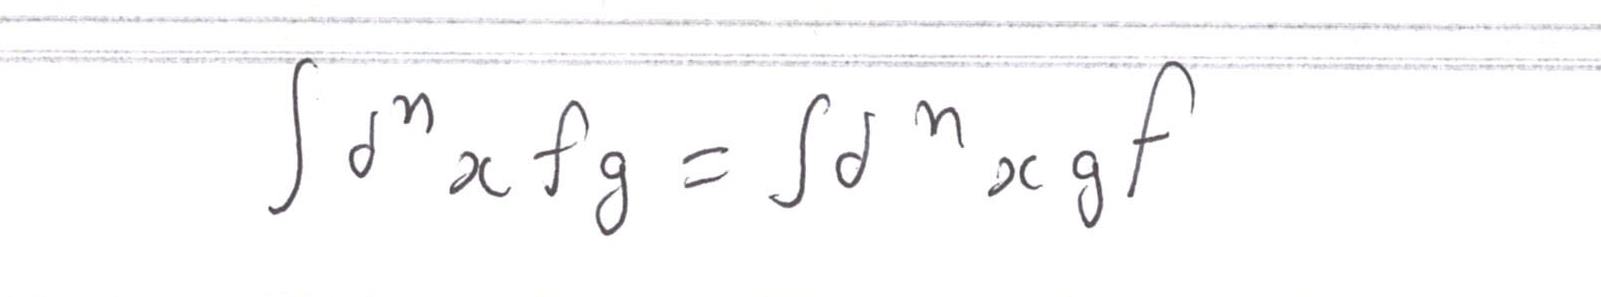 ∫ dⁿ x f g = ∫ d ⁿ x g f